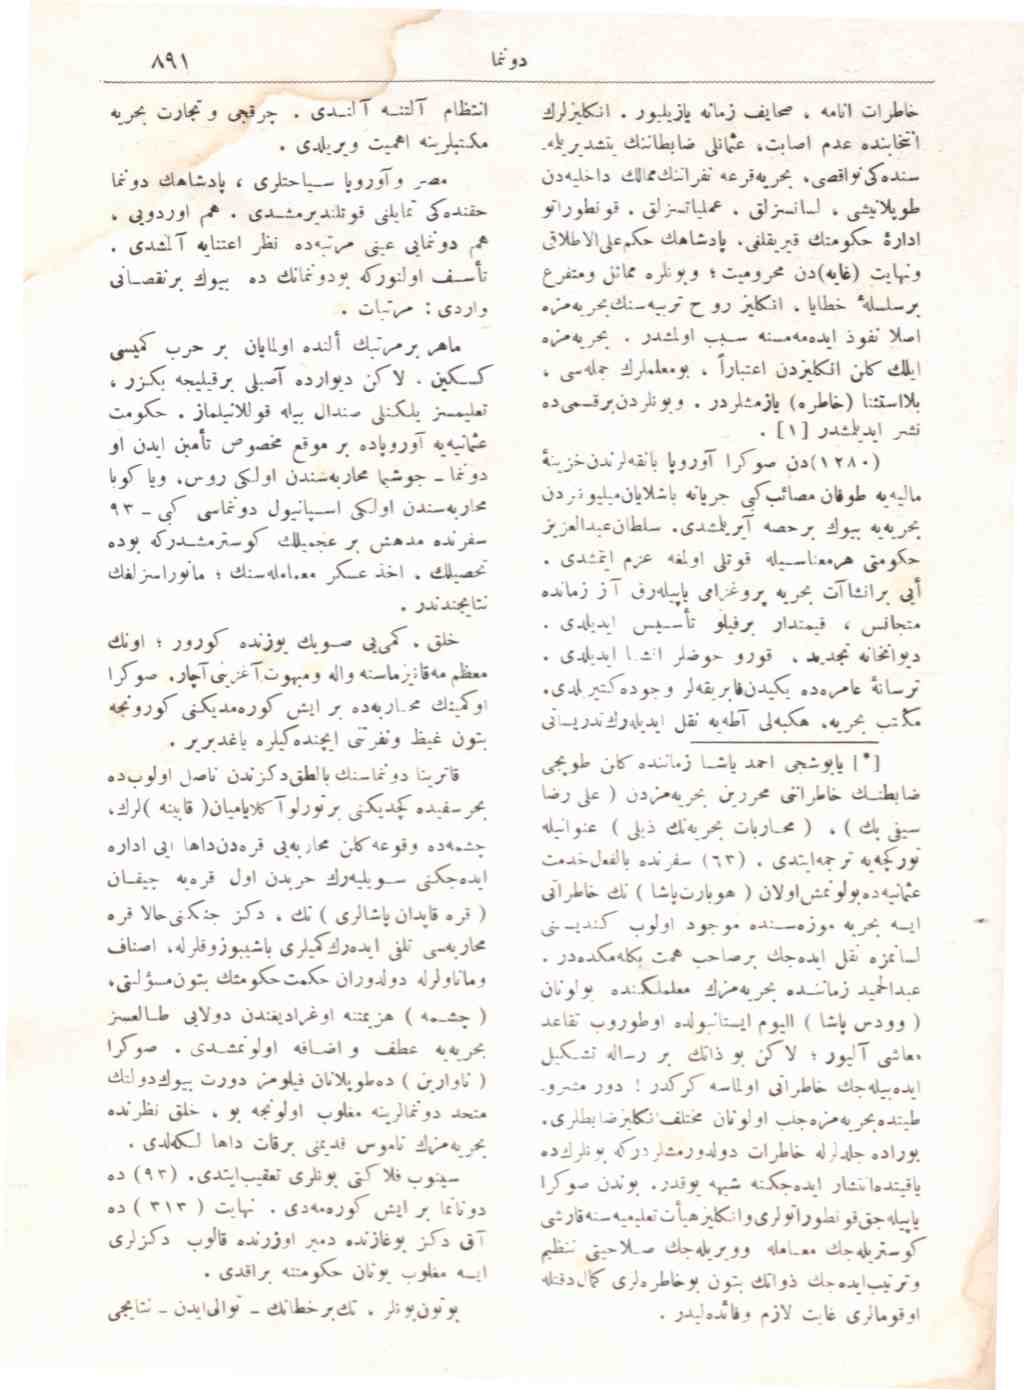 دونما
٨٩١
خاطرات انامه ، صحایف زمانه یازیلیور . انكلیزلرك
انتخابنده عدم اصابت، عثمانلی ضابطاننك یتشدیریلمه‌
سنده‌كی نواقصی، بحریه‌قرعه نفراتنك‌ممالك داخلیه‌دن
طوپلانیشی ، لسانسزلق ، عملیاتسزلق ، قونطوراتو
ادارهٔ حكومتك قیریقلغی، پادشاهك حكم‌علی‌الاطلاق
ونهایت (غایه)دن محرومیت ؛ وبونلره مماثل ومتفرع
برسلسلهٔ خطایا ، انكلیز روح تربیه‌سنك‌بحریه‌مزه
اصلا نفوذ ایده‌مه‌مسنه سبب اولمشدر . بحریه‌مزه
ایلك كلن انكلیزدن اعتباراً ، بومعلملرك جمله‌سی ،
بلااستثنا (خاطره) یازمشلردر . وبونلردن‌برقسمی‌ده
نشر ایدیلمشدر [١] .
(١٢٨٠)دن صوكرا آوروپا بانقه‌لرندن‌خزینهٔ
مالیه‌یه طوفان مصائب‌كبی جریانه باشلایان‌میلیونردن
بحریه‌یه بیوك برحصه آیریلمشدی. سلطان‌عبدالعزیز
حكومتی هرمعناسیله قوتلی اولمغه عزم ایتمشدی .
أیی برانشاآت بحریه پروغرامی یاپیله‌رق آز زمانده
متجانس ، قیمتدار برفیلو تأسیس ایدیلدی .
دیوانخانه تجدید ، قورو حوضلر انشا ایدیلدی .
ترسانهٔ عامره‌ده یكیدن‌فابریقه‌لر وجوده‌كتیریلدی.
مكتب بحریه، هكبه‌لی آطه‌یه نقل ایدیله‌رك‌تدریساتی
[*] یابوشجی احمد پاشا زماننده كلن طوپجی
ضابطنك خاطراتی محررین بحریه‌مزدن ( علی رضا
سیفی بك ) ، ( محاربات بحریه‌نك ذیلی ) عنوانیله
تورکجه‌یه ترجمه‌ایتدی . (٦٣) سفرنده بالفعل‌خدمت
عثمانیه‌ده‌بولونمش‌اولان ( هوبارت‌پاشا ) نك خاطراتی
ایسه بحریه موزه‌سنده موجود اولوب كندیسنی
لسانمزه نقل ایده‌جك برصاحب همت بكله‌مكده‌در .
عبدالحمید زماننده بحریه‌مزك معلملكنده بولونان
( وودس پاشا ) الیوم ایستانبولده اوطوروب تقاعد
معاشی آلیور ؛ لاكن بو ذاتك بر رساله تشكیل
ایده‌بیله‌جك خاطراتی اولماسه كركدر ! دور مشرو‌
طیتده‌بحریه‌مزه‌جلب اولونان مختلف‌انكلیزضابطلری،
بوراده جلدلرله خاطرات دولدورمشلردركه بونلرك‌ده
یاقینده‌انتشار ایده‌جكنه شبهه یوقدر. بوندن صوكرا
یاپیله‌جق‌قونطوراتولری وانكلیزهیأت‌تعلیمیه‌سنه‌قارشی
كوستریله‌جك معامله وویریله‌جك صلاحیتی تنظیم
وترتیب‌ایده‌جك ذواتك بتون بوخاطره‌لری كمال‌دقتله
اوقومالری غایت لازم وفائده‌لیدر .
انتظام آلتنه آلندی . چرقجی و تجارت بحریه
مكتبلرینه اهمیت ویریلدی .
مصر وآوروپا سیاحتلری ، پادشاهك دونما
حقنده‌كی تمایلنی قوتلندیرمشدی . هم اوردویی ،
هم دونمایی عینی مرتبه‌ده نظر اعتنایه آلمشدی .
تأسف اولنوركه بودونمانك ده بیوك برنقصانی
واردی : مرتبات .
ماهر برمرتبك ألنده اولمایان بر حرب كمیسی
كسكین . لاكن دیوارده آصیلی برقیلیجه بكزر ،
تعلیمسز یلكنلی صندال بیله قوللانیلماز . حكومت
عثمانیه‌یه آوروپاده بر موقع مخصوص تأمین ایدن او
دونما ـ چوشیما محاربه‌سندن اولكی روس، ویا كوبا
محاربه‌سندن اولكی اسپانیول دونماسی كبی ـ ٩٣
سفرنده مدهش بر عجمیلك كوسترمشدركه بوده
تحصیلك ، اخذ عسكر معامله‌سنك ؛ مانوراسزلغك
نتایجندندر .
خلق ، كمی‌یی صویك یوزنده كورور ؛ اونك
معظم مه‌قانیزماسنه واله ومبهوت‌آغزینی‌آچار. صوكرا
اوكمینك محاربه‌ده بر ایش كوره‌مدیكنی كورونجه
بتون غیظ ونفرتنی ایچنده‌كیلره یاغدیریر .
قاترینا دونماسنك بالطق‌دكزندن ناصل اولوب‌ده
بحر سفیده كچدیكنی برتورلوآكلایامیان( قابینه )لرك،
چشمه‌ده وقوعه‌كلن محاربه‌یی قره‌دن‌داها ایی اداره
ایده‌جكنی سویلیه‌رك حربدن اول قره‌یه چیقان
( قره قاپدان پاشالری ) نك ، دكز جنكنی‌حالا قره
محاربه‌سی تلقی ایده‌رك‌كمیلری باشیبوزوقلرله، اصناف
ومناولرله دولدوران حكمت حكومتك بتون‌مسؤلیتی،
( چشمه ) هزیمتنه اوغرادیغندن دولایی طالعسز
بحریه‌یه عطف و اضافه اولونمشدی . صوكرا
( ناوارین ) ده‌طوپلانان فیلومز دورت بیوك‌دولتك
متحد دونمالرینه مغلوب اولونجه بو ، خلق نظرنده
بحریه‌مزك ناموس قدیمنی برقات داها لكه‌لدی .
سینوب فلاكتی بونلری تعقیب‌ایتدی. (٩٣) ده
دونانما بر ایش كوره‌مه‌دی . نهایت ( ٣١٣ ) ده
آق دكز بوغازنده دمیر اوزرنده قالوب دكزلری
ایسه مغلوب یونان حكومتنه براقدی .
بوتون‌بونلر ، تك‌برخطانك ـ توالی‌ایدن ـ نتایجی